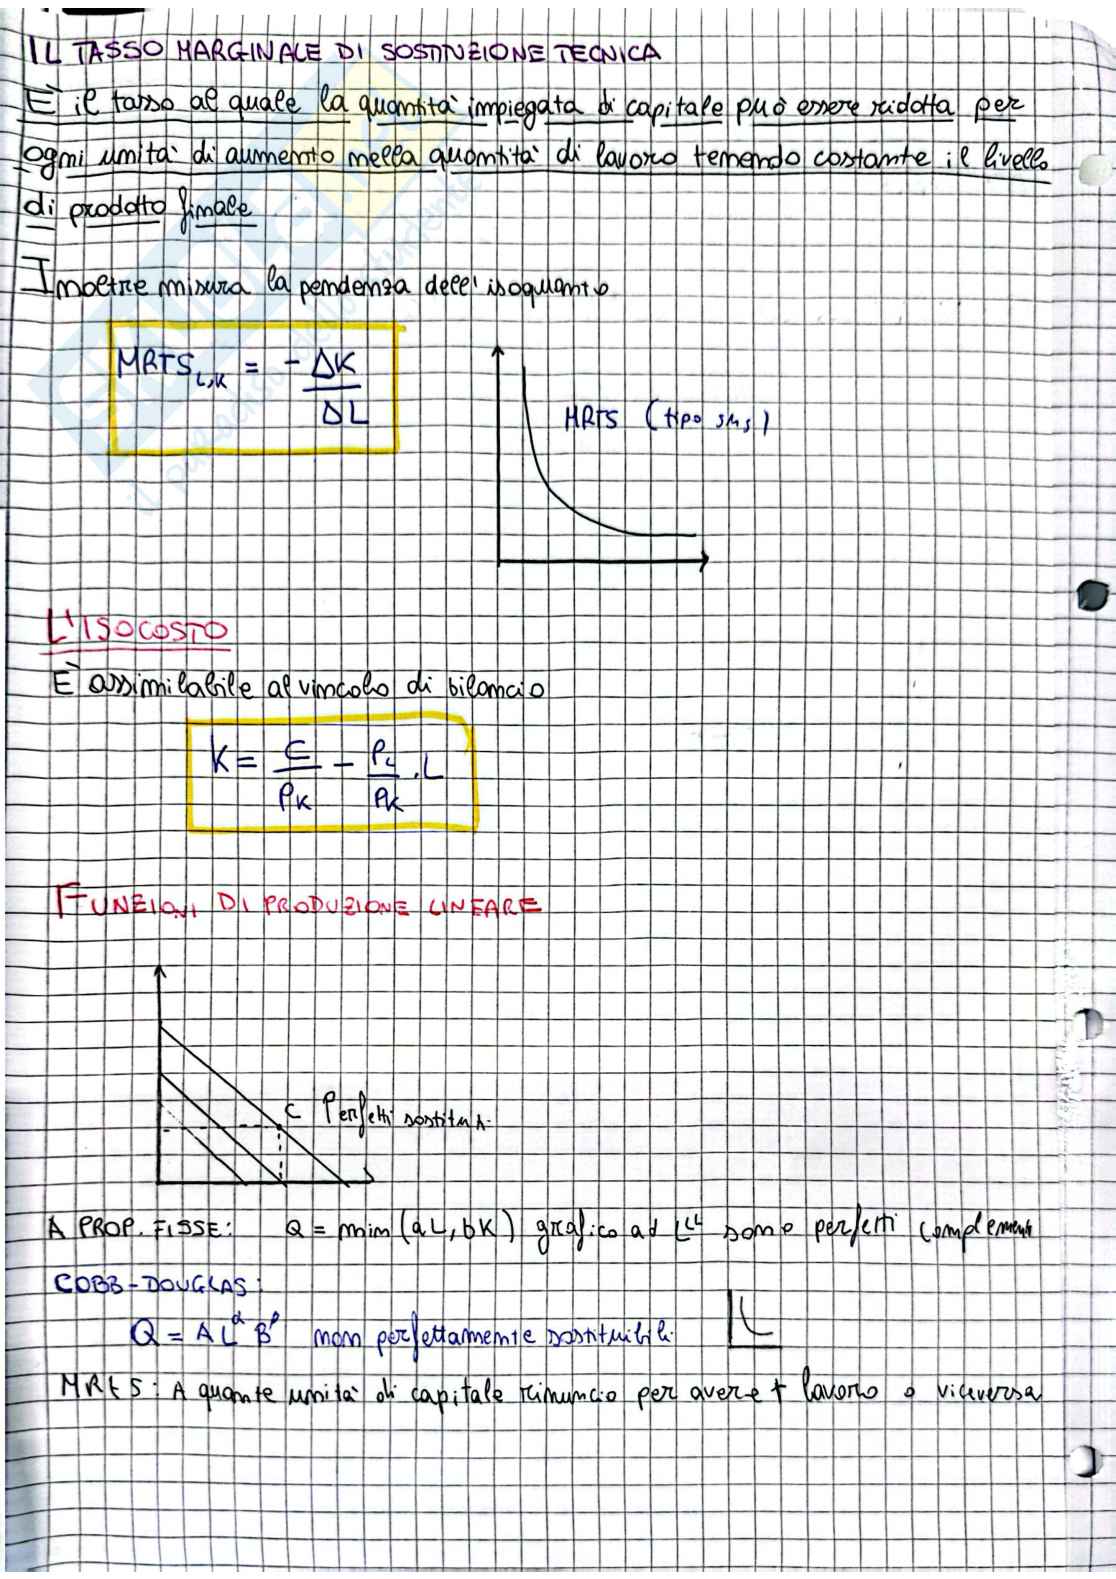 IL TASSO MARGINALE DI SOSTITUZIONE TECNICA
È il tasso al quale la quantità impiegata di capitale può essere ridotta per
ogni unità di aumento nella quantità di lavoro tenendo costante il livello
di prodotto finale
Inoltre misura la pendenza dell'isoquanto
MRTS L,K = - ΔK / ΔL
MRTS (tipo SMS)
L'ISOCOSTO
È assimilabile al vincolo di bilancio
K = C / PK - PL / PK . L
FUNZIONI DI PRODUZIONE LINEARE
C Perfetti sostituti
A PROP. FISSE: Q = min (aL, bK) grafico ad L sono perfetti complementi
COBB-DOUGLAS:
Q = A L^α B^β non perfettamente sostituibili
MRTS: A quante unità di capitale rinuncio per avere + lavoro o viceversa